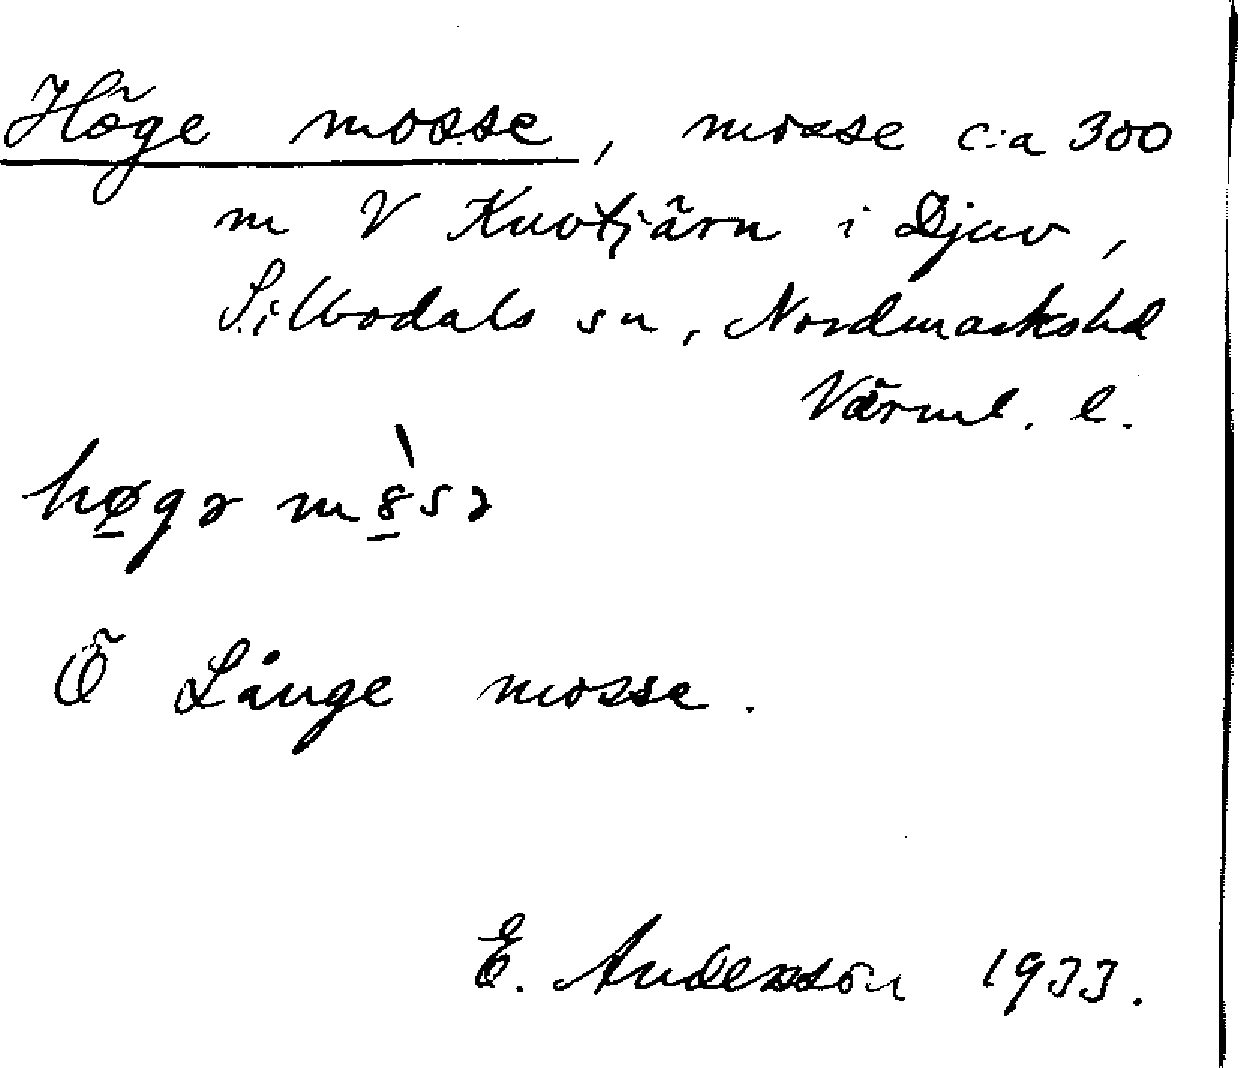 Höge mosse, mosse c:a 300
m V Knotjärn i Djuv,
Silbodals sn, Nordmarkshd
Värml. l.
hø̱gə m 8̱̀sə
Ö Långe mosse.
E. Andersson 1933.